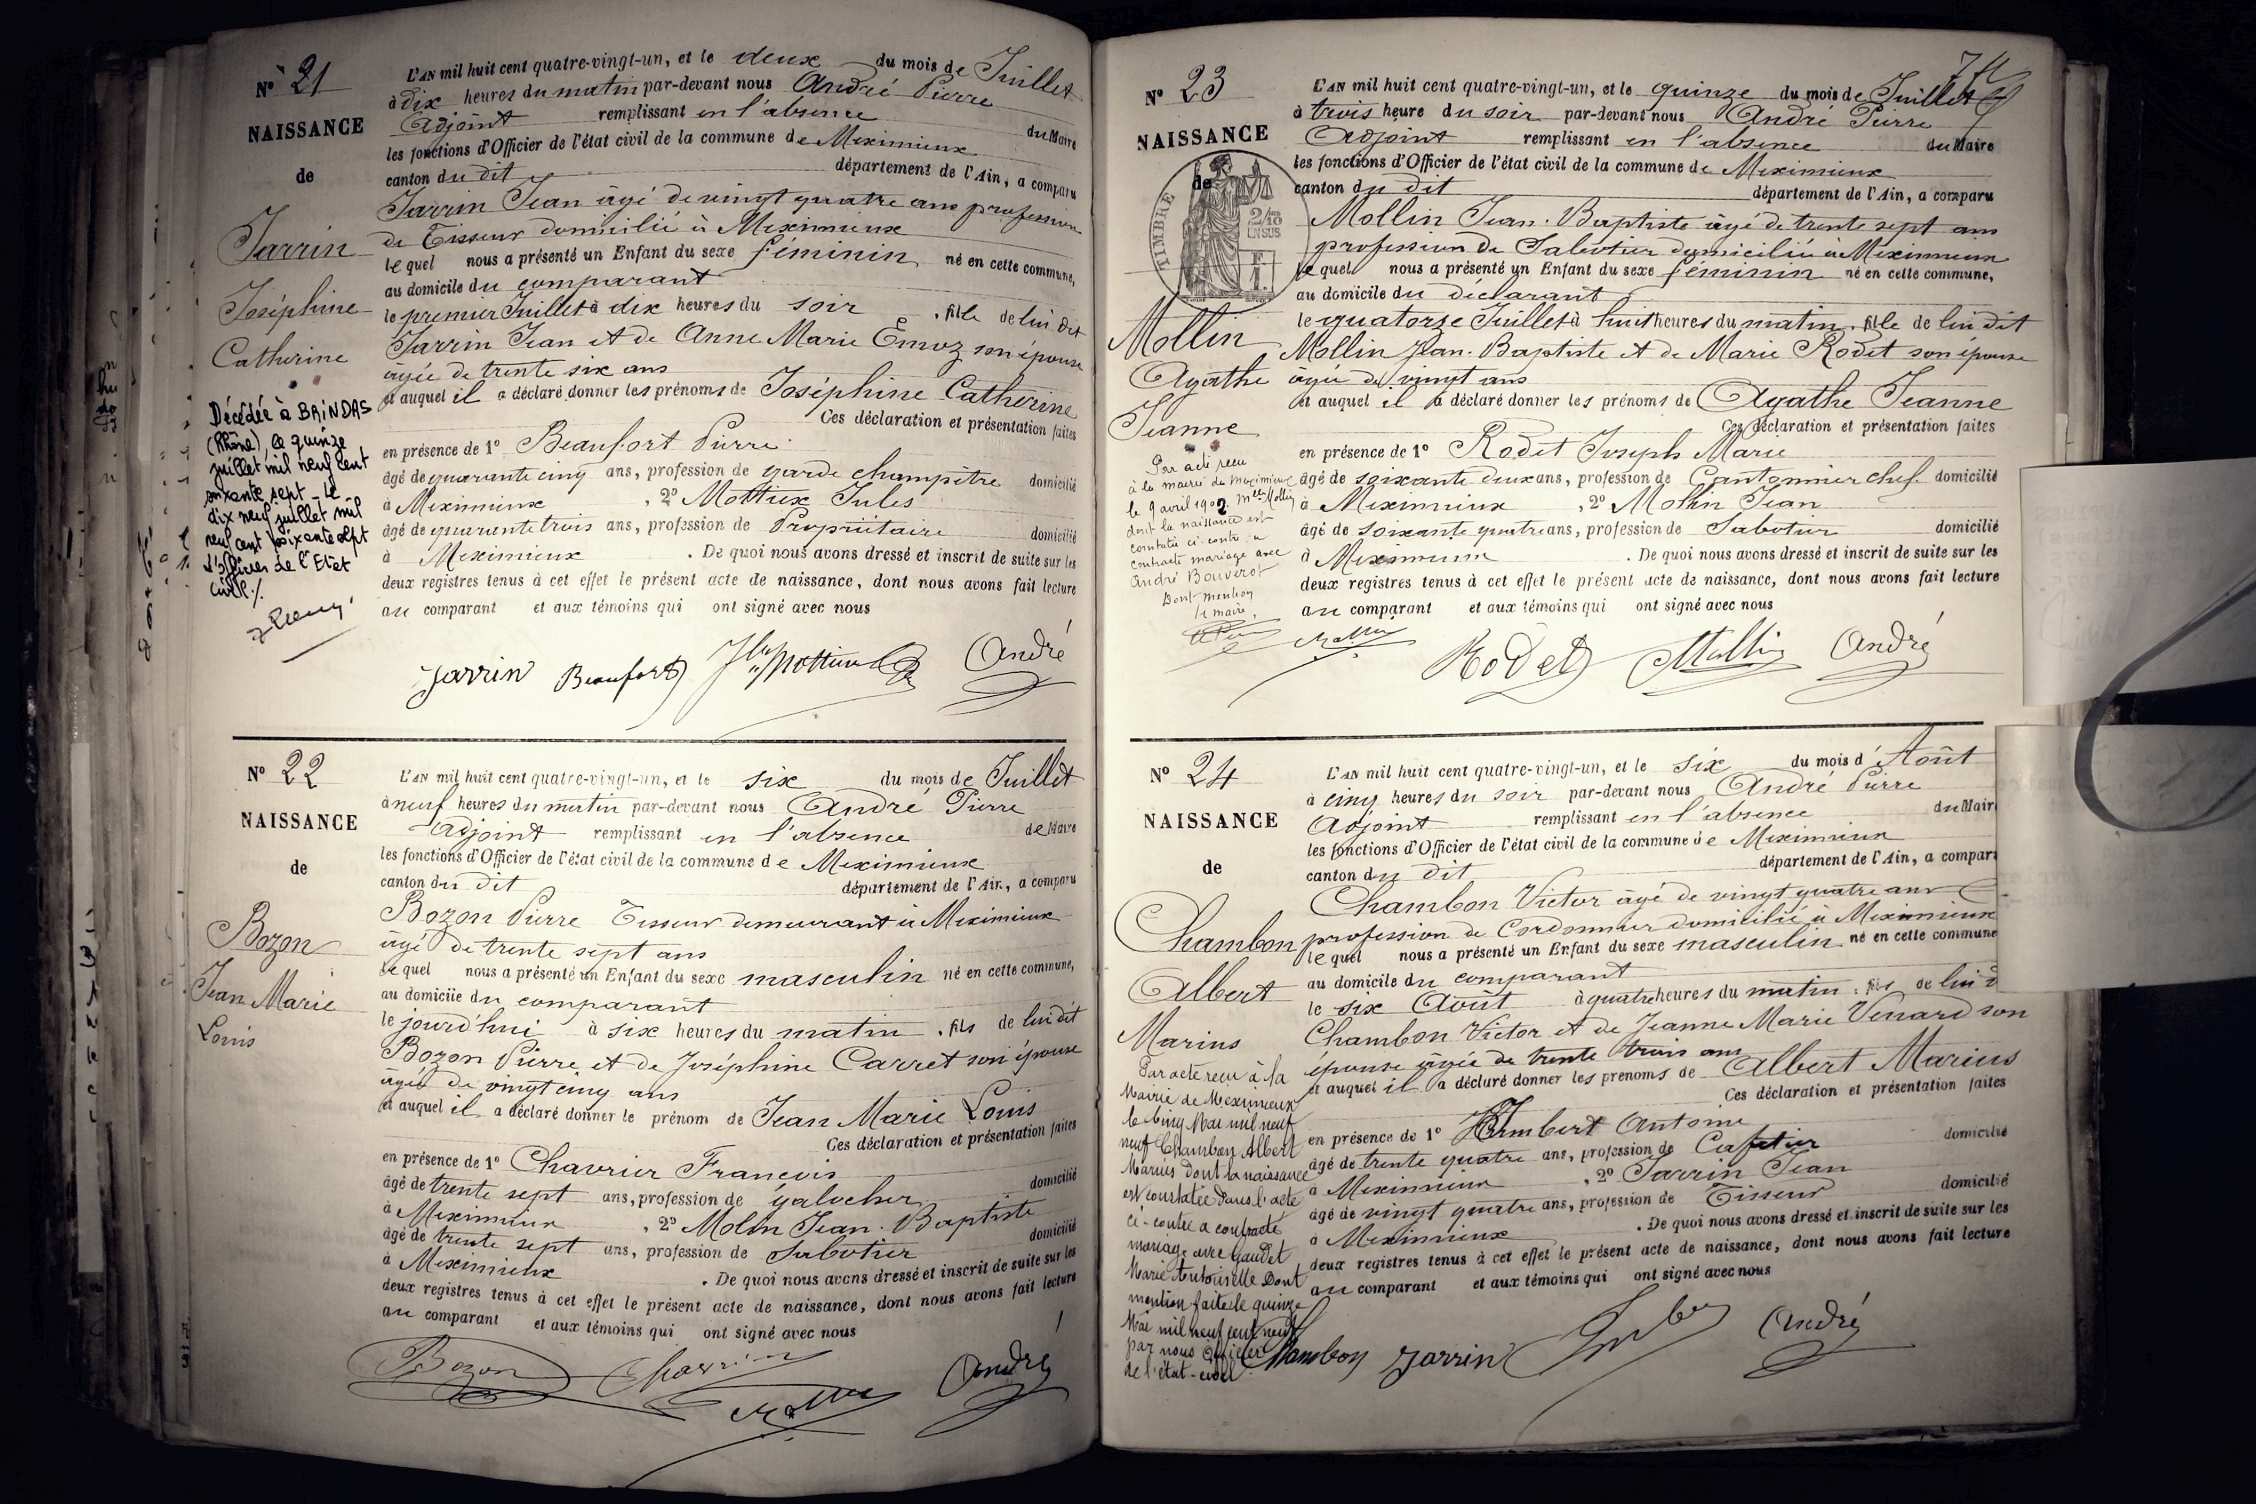 N° 21
NAISSANCE
de
Jarrin
Joséphine
Catherine
Décédée à BRINDAS
(Rhône), le quinze
juillet mil neuf cent
soixante sept - Le
dix neuf juillet mil
neuf cent soixante sept
L'Officier de l'Etat
Civil ./.
L'AN mil huit cent quatre-vingt-un, et le deux du mois de Juillet
à dix heures du matin par-devant nous André Pierre
Adjoint remplissant en l'absence du Maire
les fonctions d'Officier de l'état civil de la commune de Meximieux
canton du dit département de l'Ain, a comparu
Jarrin Jean âgé de vingt quatre ans profession
de Tisseur domicilié à Meximieux
lequel nous a présenté un Enfant du sexe féminin né en cette commune,
au domicile du comparant
le premier Juillet à dix heures du soir , fille de lui dit
Jarrin Jean et de Anne Marie Emoz son épouse
âgée de trente six ans
et auquel il a déclaré donner les prénoms de Joséphine Catherine
Ces déclaration et présentation faites
en présence de 1° Beaufort Pierre
âgé de quarante cinq ans, profession de garde champêtre domicilié
à Meximieux , 2° Mottieux Jules
âgé de quarante trois ans, profession de Propriétaire domicilié
à Meximieux . De quoi nous avons dressé et inscrit de suite sur les
deux registres tenus à cet effet le présent acte de naissance, dont nous avons fait lecture
au comparant et aux témoins qui ont signé avec nous
Jarrin Beaufort André
N° 22
NAISSANCE
de
Bozon
Jean Marie
Louis
L'AN mil huit cent quatre-vingt-un, et le six du mois de Juillet
à neuf heures du matin par-devant nous André Pierre
Adjoint remplissant en l'absence de Maire
les fonctions d'Officier de l'état civil de la commune de Meximieux
canton du dit département de l'Ain, a comparu
Bozon Pierre Tisseur demeurant à Meximieux
âgé de trente sept ans
lequel nous a présenté un Enfant du sexe masculin né en cette commune,
au domicile du comparant
le jourd'hui à six heures du matin , fils de lui dit
Bozon Pierre et de Joséphine Carret son épouse
âgée de vingt cinq ans
et auquel il a déclaré donner le prénom de Jean Marie Louis
Ces déclaration et présentation faites
en présence de 1° Chavrier François
âgé de trente sept ans, profession de galocher domicilié
à Meximieux , 2° Molin Jean-Baptiste
âgé de trente sept ans, profession de Sabotier domicilié
à Meximieux . De quoi nous avons dressé et inscrit de suite sur les
deux registres tenus à cet effet le présent acte de naissance, dont nous avons fait lecture
au comparant et aux témoins qui ont signé avec nous
Bozon André
N° 23
NAISSANCE
de
TIMBRE
2/10
EN SUS
Mollin
Agathe
Jeanne
Par acte reçu
à la mairie de Meximieux
le 9 avril 1902 Mlle Mollin
dont la naissance est
constatée ci-contre a
contracté mariage avec
André Bouverot
Dont mention
Le maire,
L'AN mil huit cent quatre-vingt-un, et le quinze du mois de Juillet
à trois heure du soir par-devant nous André Pierre
Adjoint remplissant en l'absence du Maire
les fonctions d'Officier de l'état civil de la commune de Meximieux
canton du dit département de l'Ain, a comparu
Mollin Jean-Baptiste âgé de trente sept ans
profession de Sabotier domicilié à Meximieux
lequel nous a présenté un Enfant du sexe féminin né en cette commune,
au domicile du déclarant
le quatorze Juillet à huit heures du matin, fille de lui dit
Mollin Jean-Baptiste et de Marie Rodet son épouse
âgée de vingt ans
et auquel il a déclaré donner les prénoms de Agathe Jeanne
Ces déclaration et présentation faites
en présence de 1° Rodet Joseph Marie
âgé de soixante deux ans, profession de Cantonnier chef domicilié
à Meximieux , 2° Mollin Jean
âgé de soixante quatre ans, profession de Sabotier domicilié
à Meximieux . De quoi nous avons dressé et inscrit de suite sur les
deux registres tenus à cet effet le présent acte de naissance, dont nous avons fait lecture
au comparant et aux témoins qui ont signé avec nous
Rodet Mollin André
N° 24
NAISSANCE
de
Chambon
Albert
Marius
Par acte reçu à la
Mairie de Meximieux
le cinq Mai mil neuf
neuf Chambon Albert
Marius dont la naissance
est constatée dans l'acte
ci-contre a contracté
mariage avec Gaudet
Marie Antoinette Dont
mention faite le quinze
Mai mil neuf cent neuf
par nous Officier
de l'état-civil
L'AN mil huit cent quatre-vingt-un, et le six du mois d'Août
à cinq heures du soir par-devant nous André Pierre
Adjoint remplissant en l'absence du Maire
les fonctions d'Officier de l'état civil de la commune de Meximieux
canton du dit département de l'Ain, a compar
Chambon Victor âgé de vingt quatre ans
profession de Cordonnier domicilié à Meximieux
lequel nous a présenté un Enfant du sexe masculin né en cette commune
au domicile du comparant
le six Août à quatre heures du matin, fils de lui d
Chambon Victor et de Jeanne Marie Venard son
épouse âgée de trente trois ans
et auquel il a déclaré donner les prénoms de Albert Marius
Ces déclaration et présentation faites
en présence de 1° Humbert Antoine
âgé de trente quatre ans, profession de Cafetier domicilié
à Meximieux , 2° Jarrin Jean
âgé de vingt quatre ans, profession de Tisseur domicilié
à Meximieux . De quoi nous avons dressé et inscrit de suite sur les
deux registres tenus à cet effet le présent acte de naissance, dont nous avons fait lecture
au comparant et aux témoins qui ont signé avec nous
Chambon Jarrin André